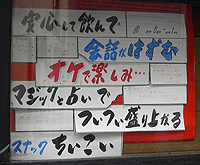 安心して飲んで
会話がはずむ
オケで楽しみ…
マジックと占いで
ついつい盛り上がる
スナック ちいこい